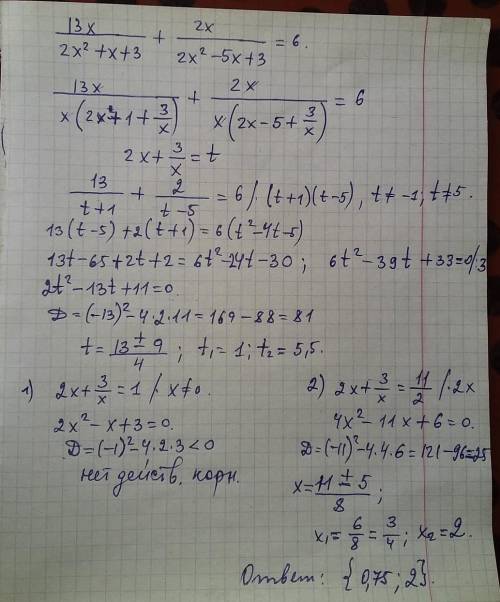 13x/(2x²+x+3) + 2x/(2x²-5x+3) = 6.
13x/(x(2x+1+3/x)) + 2x/(x(2x-5+3/x)) = 6
2x+3/x = t
13/(t+1) + 2/(t-5) = 6 /· (t+1)(t-5), t≠-1; t≠5.
13(t-5)+2(t+1)=6(t²-4t-5)
13t-65+2t+2=6t²-24t-30; 6t²-39t+33=0/:3
2t²-13t+11=0.
D=(-13)²-4·2·11=169-88=81
t=(13±9)/4; t₁=1; t₂=5,5.
1) 2x+3/x=1 /· x≠0.
2x²-x+3=0.
D=(-1)²-4·2·3<0
нет действ. корн.
2) 2x+3/x=11/2 /·2x
4x²-11x+6=0.
D=(-11)²-4·4·6=121-96=25
x=(11±5)/8;
x₁=6/8=3/4; x₂=2.
Ответ: {0,75; 2}.